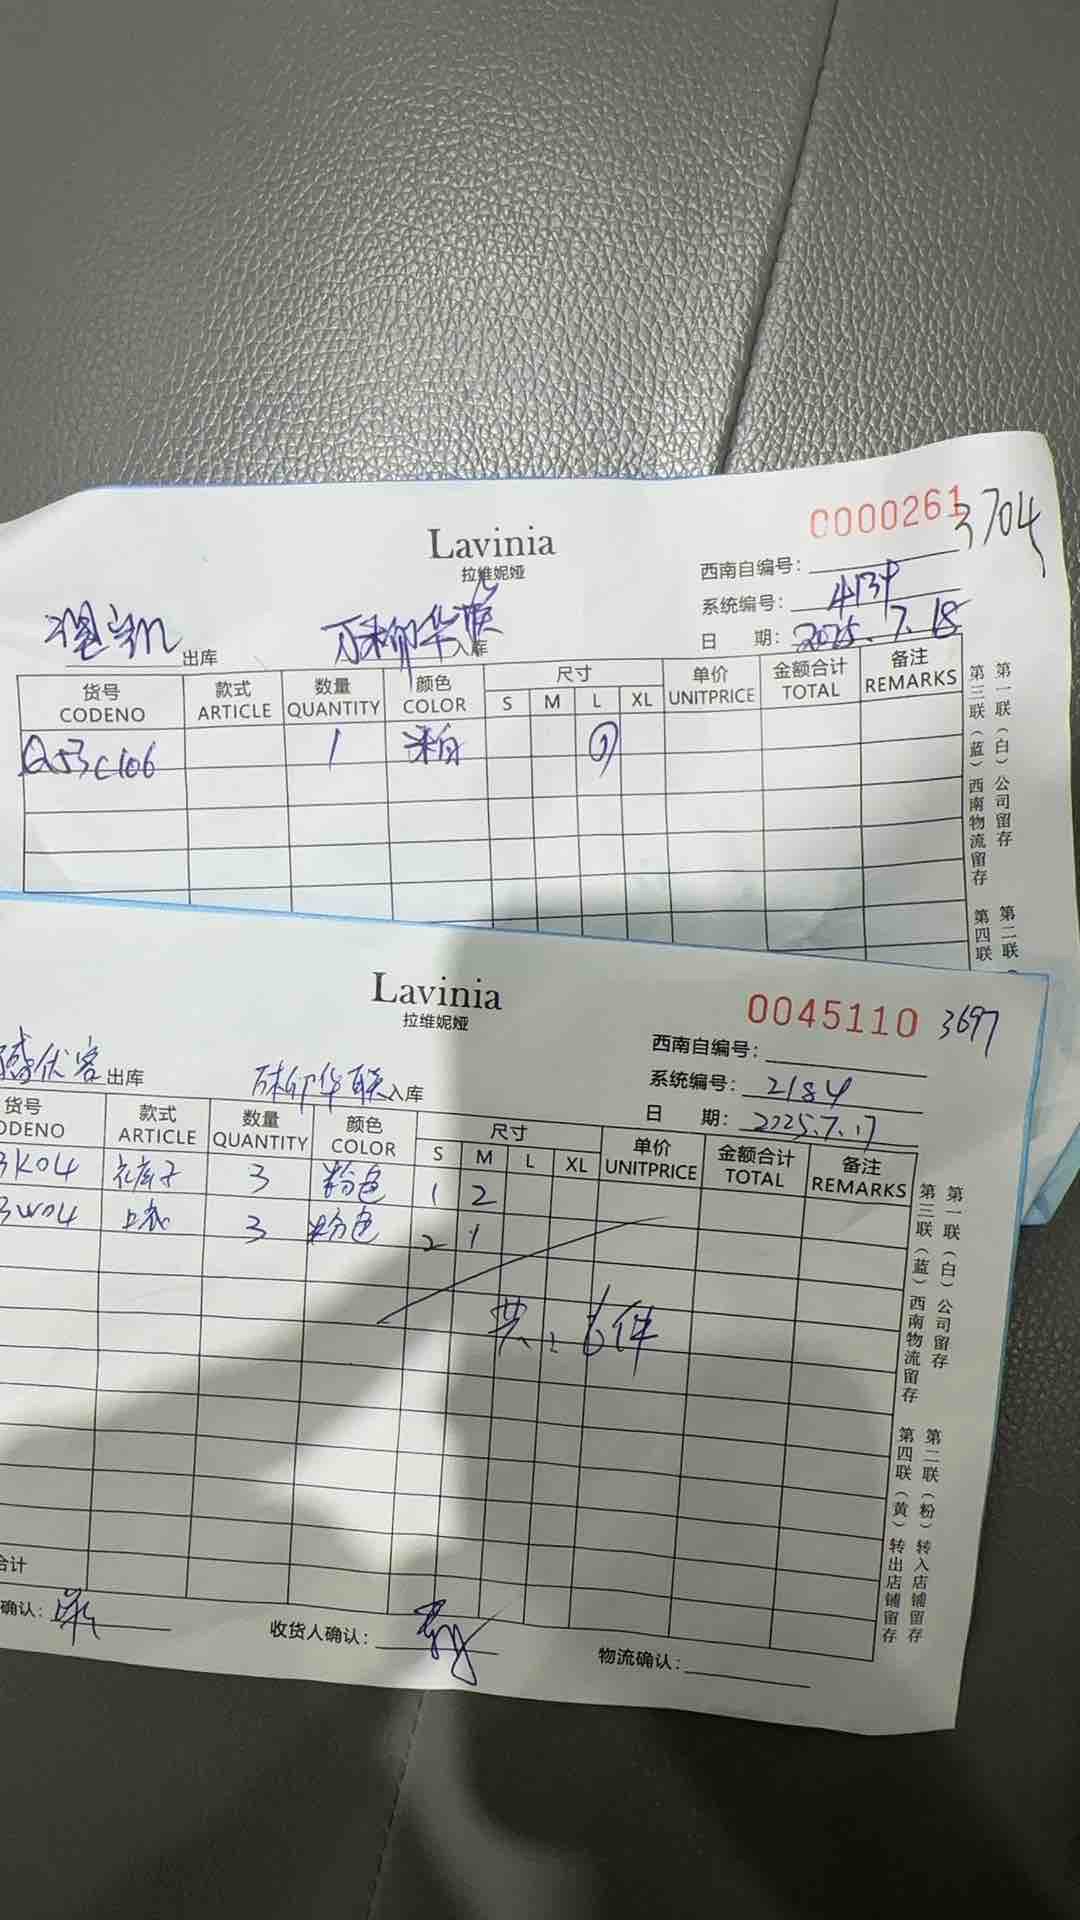 0000261 3704
Lavinia
拉维妮娅
西南自编号：
系统编号：4134
日 期：2025.7.18
出库 万来邻华联 入库
货号 款式 数量 颜色 尺寸 单价 金额合计 备注
CODENO ARTICLE QUANTITY COLOR S M L XL UNITPRICE TOTAL REMARKS
Q53C106 1 米白 1
第一联（白）公司留存
第三联（蓝）西南物流留存
第二联
第四联
Lavinia
拉维妮娅
0045110 3697
西南自编号：
系统编号：2184
日 期：2025.7.17
出库 华联 入库
货号 款式 数量 颜色 尺寸 单价 金额合计 备注
ODENO ARTICLE QUANTITY COLOR S M L XL UNITPRICE TOTAL REMARKS
3K04 裤子 3 粉色 1 2
3W04 上衣 3 粉色 2 1
共：6件
合计
确认： 收货人确认： 物流确认：
第一联（白）公司留存
第三联（蓝）西南物流留存
第二联（粉）转入店铺留存
第四联（黄）转出店铺留存